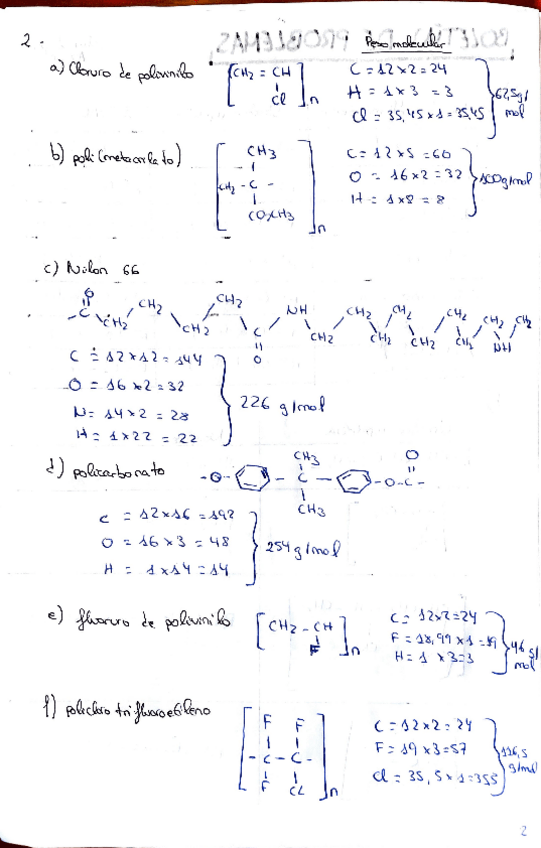 BOLETÍN DE PROBLEMAS
2.
Peso molecular
a) Cloruro de polivinilo
[CH2 = CH
Cl]n
C = 12 x 2 = 24
H = 1 x 3 = 3
Cl = 35,45 x 1 = 35,45
62,5 g/mol
b) poli(metacrilato)
CH3
CH2 - C -
CO2CH3
n
C = 12 x 5 = 60
O = 16 x 2 = 32
H = 1 x 8 = 8
100 g/mol
c) Nilon 66
O
- C CH2 CH2 CH2 CH2 C NH CH2 CH2 CH2 CH2 CH2 CH2 CH2 NH CH2
O
C = 12 x 12 = 144
O = 16 x 2 = 32
N = 14 x 2 = 28
H = 1 x 22 = 22
226 g/mol
d) policarbonato
CH3 O
-O- - C - -O-C-
CH3
C = 12 x 16 = 192
O = 16 x 3 = 48
H = 1 x 14 = 14
254 g/mol
e) fluoruro de polivinilo
[CH2 - CH
F]n
C = 12x2 = 24
F = 18,99 x 1 = 19
H = 1 x 3 = 3
46 g/mol
f) policloro trifluoroetileno
F F
- C - C -
F CL
n
C = 12 x 2 = 24
F = 19 x 3 = 57
Cl = 35,5 x 1 = 355
116,5 g/mol
2